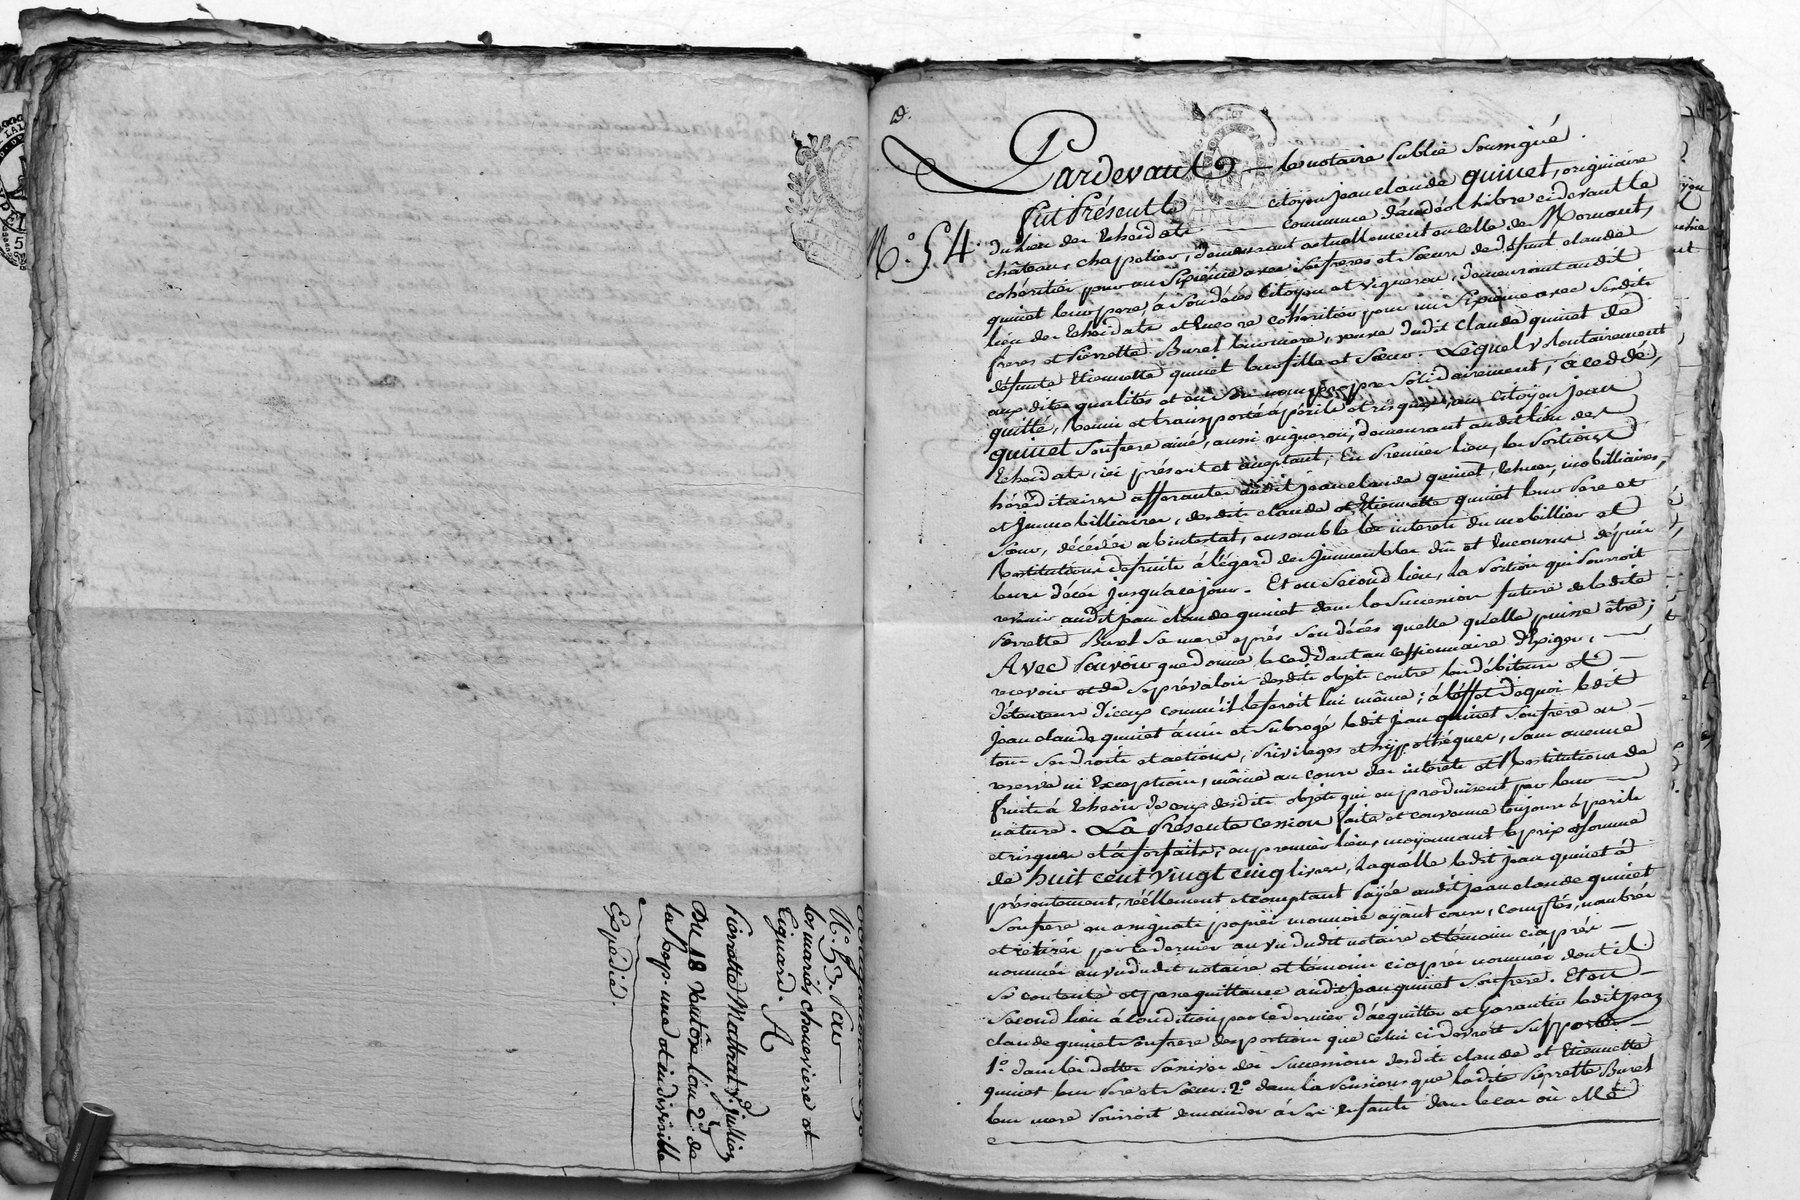 N.° 53. Par
les mariés chenevière et
Tignard. A
Pierrette Mathrat v.e Jullien
Du 18 Ventôse l'an 2.d de
la Rep. une et indivisible
Expédié.
D.
Pardevant le notaire Public soussigné.
N.° 54
Fut Présent le citoyen jean claude quinet, originaire
du lieu de commune d'andéol libre cidevant le
château, chapelier, demeurant actuellement en celle de Mornant,
cohéritier pour un sixième avec ses freres et Sœur de défunt claude
quinet leur pere, à son décès Citoyen et vigneron, demeurant au dit
lieu de et encore cohéritier pour un sixième avec sesdits
freres et Pierrette Burel leur mere, veuve dudit claude quinet de
défunte Etiennette quinet leur fille et Sœur. Lequel volontairement
aux dites qualités et en son nom propre solidairement, à ceddé,
quitté, remis et transporté à périls et risques, au citoyen jean
quinet son frere ainé, aussi vigneron, demeurant audit lieu de
ici présent et acceptant, En Premier lieu, les Portions
héréditaires afferantes audit jean claude quinet, échues, mobilliaires,
et Immobilliaires, desdits claude et Etiennette quinet leur Pere et
Sœur, décédés ab intestat, ensemble les interets du mobillier et
Restitutions de fruits à l'égard des Immeubles dûs et encourus depuis
leurs décès jusqu'à ce jour. Et en Second lieu, La Portion qui Pourroit
revenir audit jean claude quinet dans la Succession future de ladite
Pierrette Burel sa mere après son décès quelle qu'elle puisse être;
Avec Pouvoir que donne le ceddant au cessionnaire d'exiger,
recevoir et de se prévaloir desdits objets contre les débiteurs et
détenteurs d'iceux comme il le feroit lui même; à l'effet de quoi ledit
jean claude quinet à mis et subrogé ledit jean quinet son frere en
tous ses droits et actions, Privileges et hypothéques, sans aucune
reserve ni Exception, même au cours des intérêts et Restitutions de
fruits à échoir de ceux desdits objets qui en produisent par leur
nature. La Présente cession faite et convenue toujours à perils
et risques et à forfaits, en premier lieu, moyennant le prix et somme
de huit cent vingt cinq livres, Laquelle ledit jean quinet à
présentement, réellement et comptant Payée audit jean claude quinet
son frere en assignats papier monnoie ayant cours, comptés, nombrés
et retirés par ce dernier au vu dudit notaire et témoins ciaprès
nommés au vu dudit notaire et témoins ciaprès nommés dont il
se contente et passe quittance audit jean quinet son frere. Et en
Second lieu à condition par ce dernier d'acquitter et Garantir ledit jean
claude quinet son frere des portions que celui ci devroit supporter
1.° dans les dettes Passives des Successions desdits claude et Etiennette
quinet leur Pere et Sœur. 2.° dans la Pension que ladite Pierrette Burel
leur mere Pourroit demander à ses enfants dans le cas où Elle